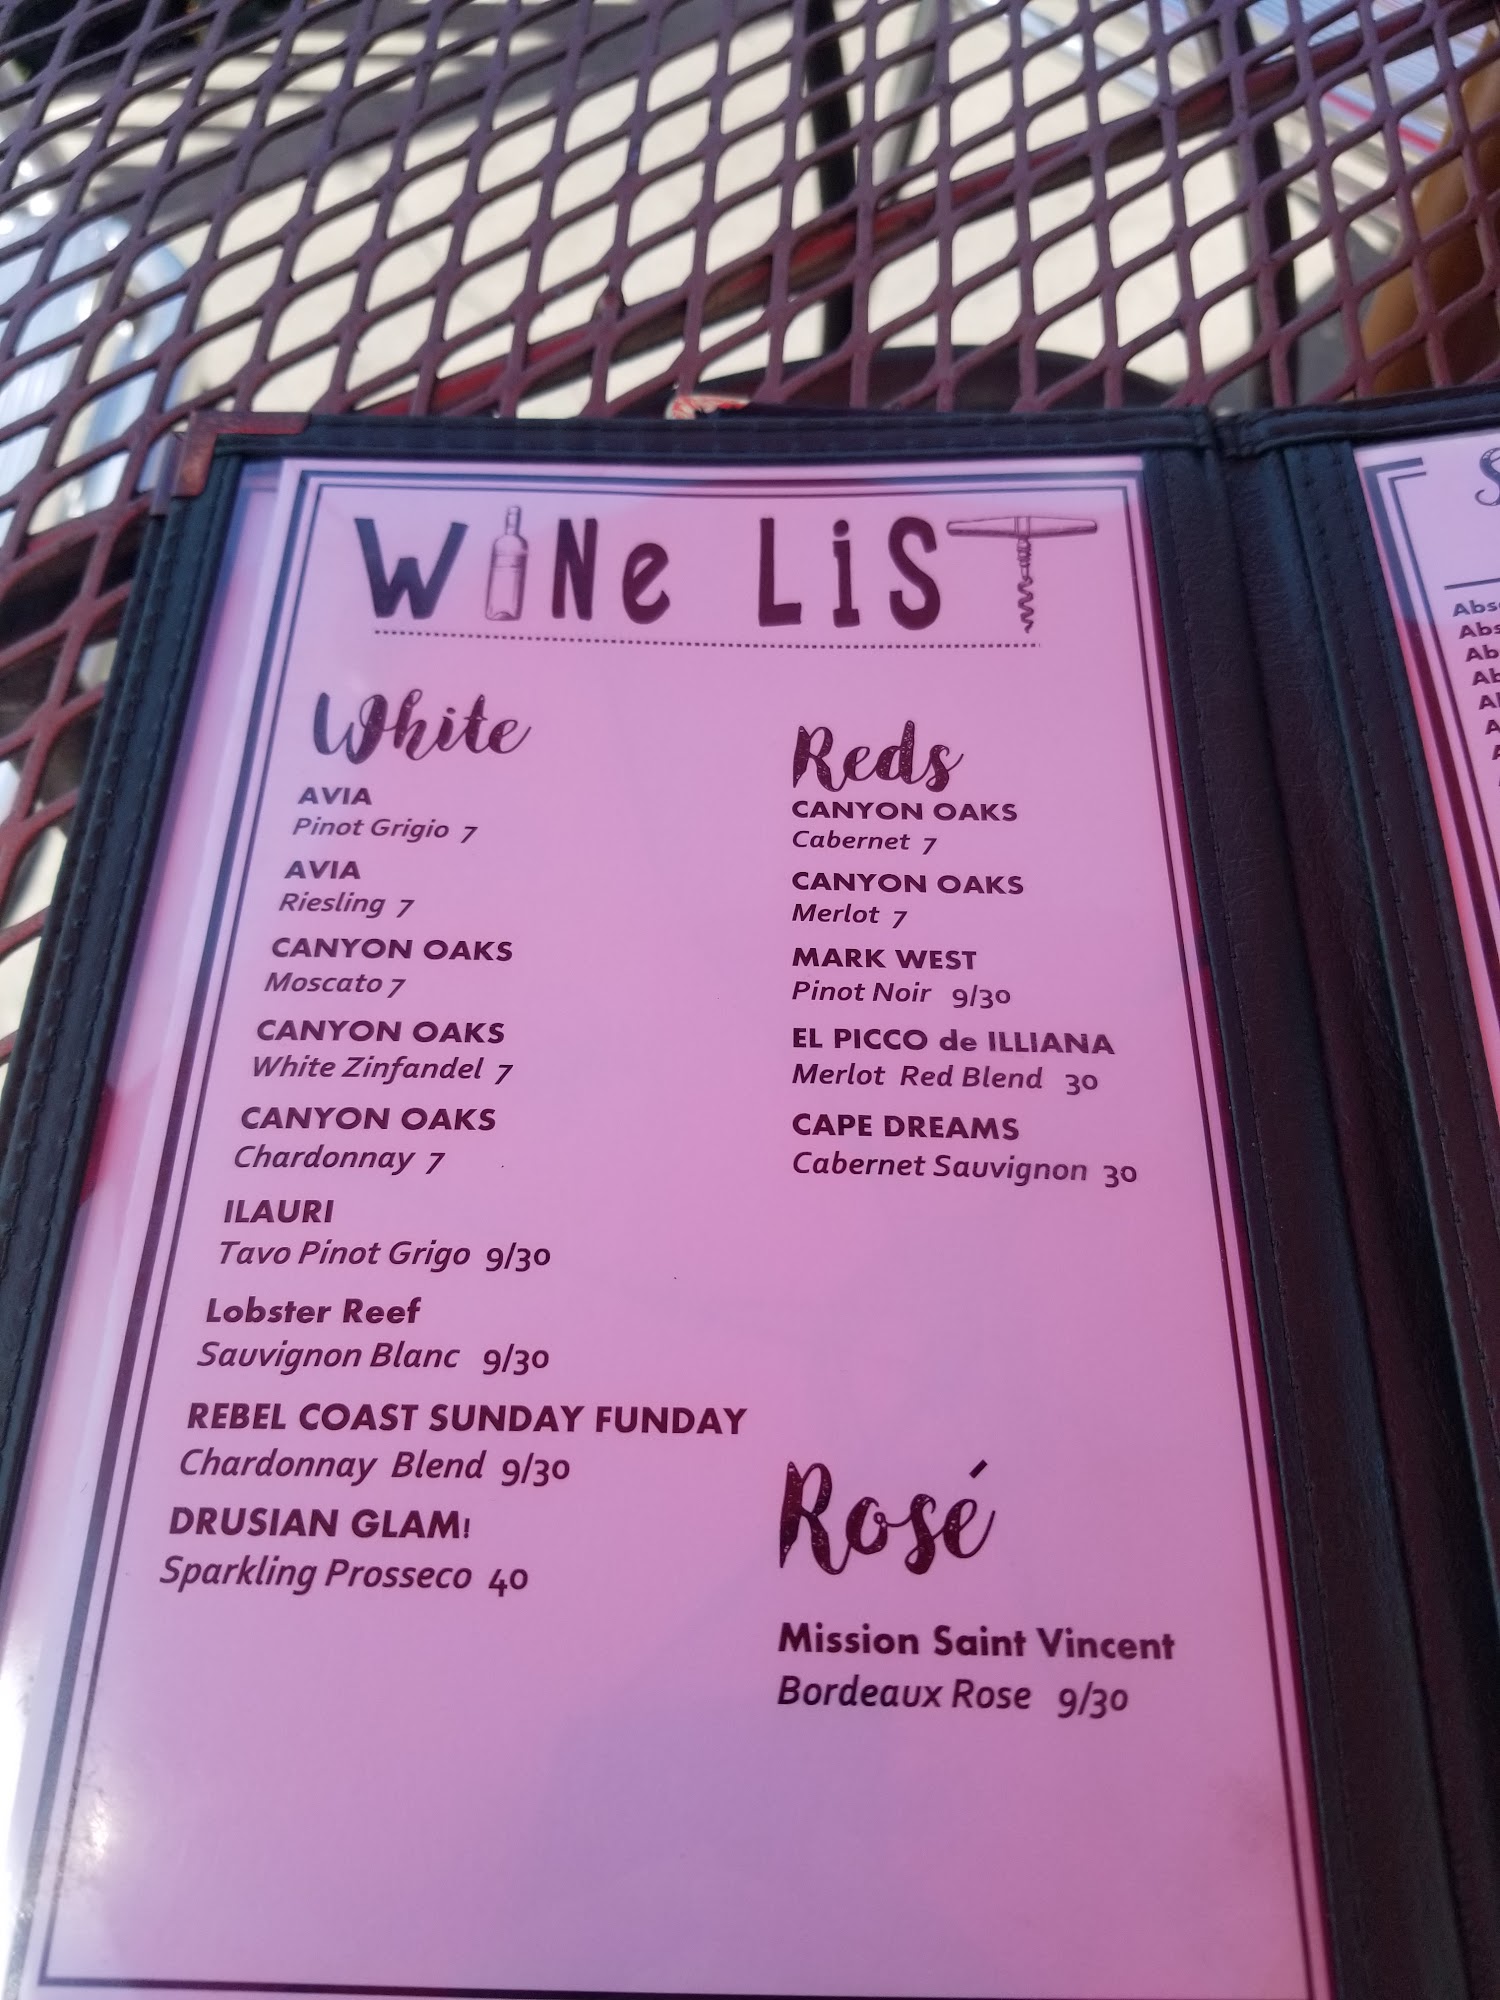 WiNe LiST
White
AVIA
Pinot Grigio 7
AVIA
Riesling 7
CANYON OAKS
Moscato 7
CANYON OAKS
White Zinfandel 7
CANYON OAKS
Chardonnay 7
ILAURI
Tavo Pinot Grigo 9/30
Lobster Reef
Sauvignon Blanc 9/30
REBEL COAST SUNDAY FUNDAY
Chardonnay Blend 9/30
DRUSIAN GLAM!
Sparkling Prosseco 40
Reds
CANYON OAKS
Cabernet 7
CANYON OAKS
Merlot 7
MARK WEST
Pinot Noir 9/30
EL PICCO de ILLIANA
Merlot Red Blend 30
CAPE DREAMS
Cabernet Sauvignon 30
Rosé
Mission Saint Vincent
Bordeaux Rose 9/30